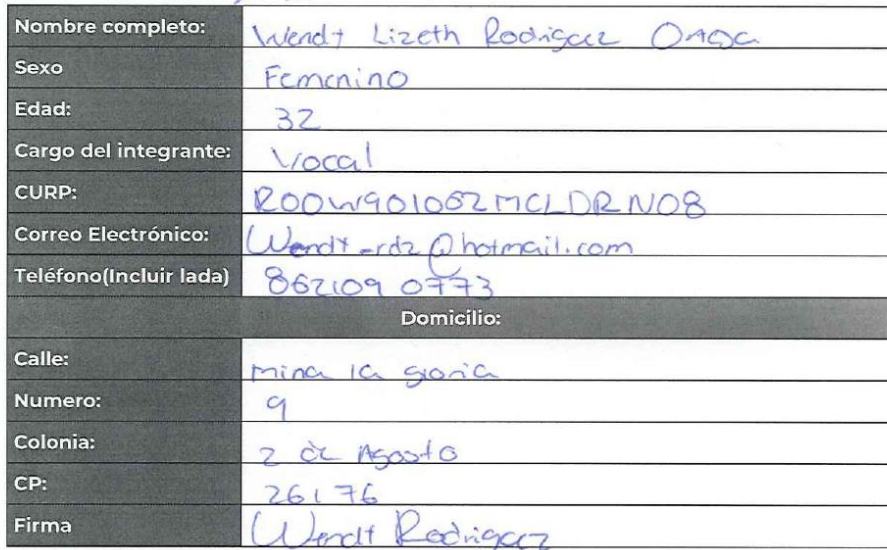 Nombre completo: Wendt Lizeth Rodriguez
Sexo Femenino
Edad: 32
Cargo del integrante: Vocal
CURP: ROOW901002MCLDRN08
Correo Electrónico: Wendt_rdz@hotmail.com
Teléfono(Incluir lada) 862109 0773
Domicilio:
Calle: mina la gloria
Numero: 9
Colonia: 2 de Agosto
CP: 26176
Firma Wendt Rodriguez